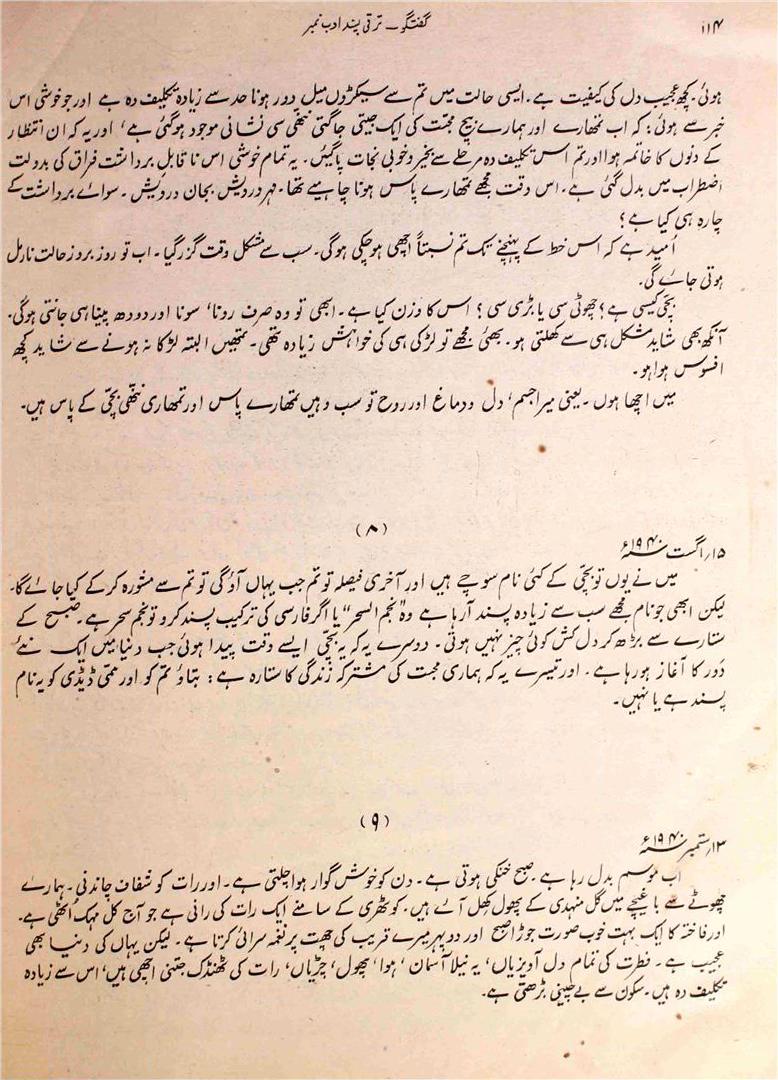 ۱۱۴
گفتگو۔ ترقی پسند ادب نمبر
ہوئی۔ کچھ عجیب دل کی کیفیت ہے۔ ایسی حالت میں تم سے سیکڑوں میل دور ہونا حد سے زیادہ تکلیف دہ ہے اور جو خوشی اس
خبر سے ہوئی؛ کہ اب تمھارے اور ہمارے بیچ محبت کی ایک جیتی جاگتی ننھی سی نشانی موجود ہوگئی ہے، اور یہ کہ ان انتظار
کے دنوں کا خاتمہ ہوا اور تم اس تکلیف دہ مرحلے سے بخیر و خوبی نجات پاگئیں۔ یہ تمام خوشی اس ناقابل برداشت فراق کی بدولت
اضطراب میں بدل گئی ہے۔ اس وقت مجھے تمھارے پاس ہونا چاہیے تھا۔ قہر درویش بجان درویش۔ سوائے برداشت کے
چارہ ہی کیا ہے؟
اُمید ہے کہ اس خط کے پہنچنے تک تم نسبتاً اچھی ہوچکی ہوگی۔ سب سے مشکل وقت گزر گیا۔ اب تو روز بروز حالت نارمل
ہوتی جائے گی۔
بچّی کیسی ہے؟ چھوٹی سی یا بڑی سی؟ اس کا وزن کیا ہے۔ ابھی تو وہ صرف رونا، سونا اور دودھ پینا ہی جانتی ہوگی۔
آنکھ بھی شاید مشکل ہی سے کھلتی ہو۔ بھئی مجھے تو لڑکی ہی کی خواہش زیادہ تھی۔ تمھیں البتہ لڑکا نہ ہونے سے شاید کچھ
افسوس ہوا ہو۔
میں اچھا ہوں۔ یعنی میرا جسم، دل و دماغ اور روح تو سب وہیں تمھارے پاس اور تمھاری ننھی بچّی کے پاس ہیں۔
(۸)
۱۵؍ اگست ۱۹۴۰ء
میں نے یوں تو بچّی کے کئی نام سوچے ہیں اور آخری فیصلہ تو تم جب یہاں آؤ گی تو تم سے مشورہ کرکے کیا جائے گا۔
لیکن ابھی جو نام مجھے سب سے زیادہ پسند آرہا ہے وہ "نجم السحر" یا اگر فارسی کی ترکیب پسند کرو تو نجم سحر ہے۔ صبح کے
ستارے سے بڑھ کر دل کش کوئی چیز نہیں ہوتی۔ دوسرے یہ کہ یہ بچّی ایسے وقت پیدا ہوئی جب دنیا میں ایک نئے
دَور کا آغاز ہورہا ہے۔ اور تیسرے یہ کہ ہماری محبت کی مشترکہ زندگی کا ستارہ ہے: بتاؤ تم کو اور ممّی ڈیڈی کو یہ نام
پسند ہے یا نہیں۔
(۹)
۱۳؍ ستمبر ۱۹۴۰ء
اب موسم بدل رہا ہے۔ صبح خنکی ہوتی ہے۔ دن کو خوش گوار ہوا چلتی ہے۔ اور رات کو شفاف چاندنی۔ ہمارے
چھوٹے سے باغیچے میں گل منہدی کے پھول کھِل آئے ہیں۔ کوٹھری کے سامنے ایک رات کی رانی ہے جو آج کل مہک اُٹھتی ہے۔
اور فاختہ کا ایک بہت خوب صورت جوڑا صبح اور دوپہر میرے قریب کی چھت پر نغمہ سرائی کرتا ہے۔ لیکن یہاں کی دنیا بھی
عجیب ہے۔ فطرت کی تمام دل آویزیاں، یہ نیلا آسمان، ہوا، پھول، چڑیاں، رات کی ٹھنڈک جتنی اچھی ہیں، اس سے زیادہ
تکلیف دہ ہیں۔ سکون سے بے چینی بڑھتی ہے۔